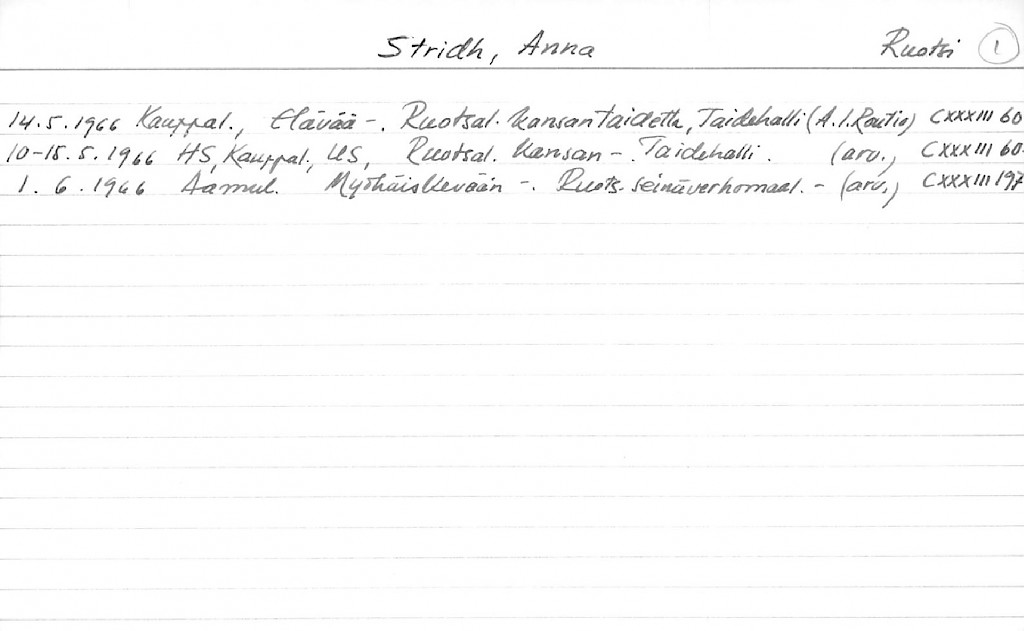 Stridh, Anna Ruotsi 1
14.5.1966 Kauppal., Elävää -. Ruotsal. kansantaidetta, Taidehalli (A.I.Routio) CXXXIII 60
10-15.5.1966 HS, Kauppal., US, Ruotsal. kansan -. Taidehalli. (arv.) CXXXIII 60
1.6.1966 Aamul. Myöhäiskevään -. Ruots. seinäverhomaal. - (arv.) CXXXIII 197